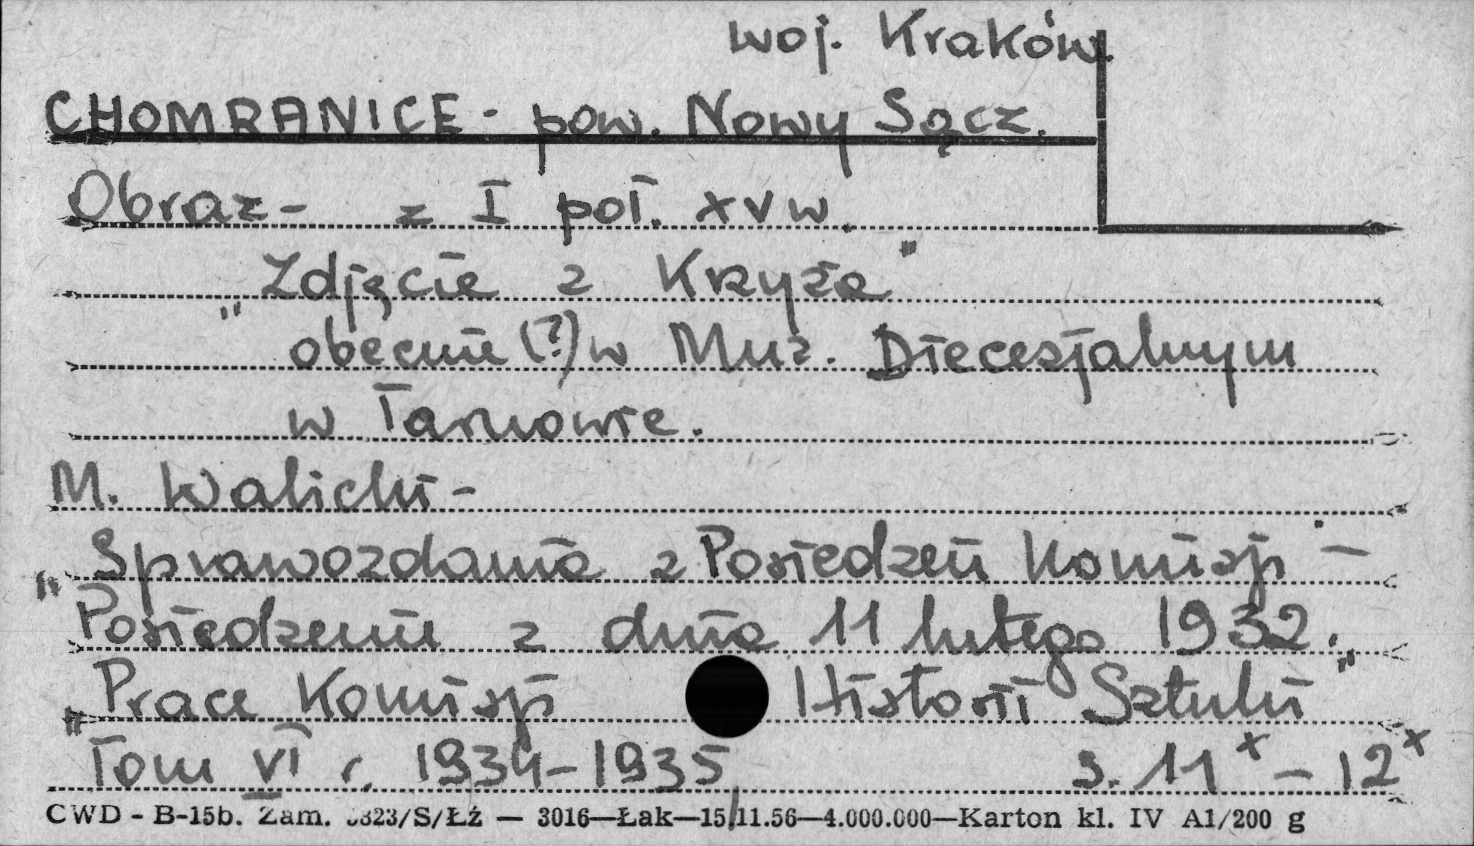 woj. Kraków.
CHOMRANICE - pow. Nowy Sącz.
Obraz - z I poł. XV w.
„Zdjęcie z Krzyża”
obecnie (?) w Muz. Diecesjalnym
w Tarnowie.
M. Walicki -
„Sprawozdania z Posiedzeń Komisji. —
Posiedzenie z dnia 11 lutego 1932.”
„Prace Komisji Historii Sztuki”
Tom VI r. 1934-1935 s. 11ˣ - 12ˣ
CWD - B-15b. Zam. 3823/S/Łź — 3016—Łak—15/11.56—4.000.000—Karton kl. IV A1/200 g